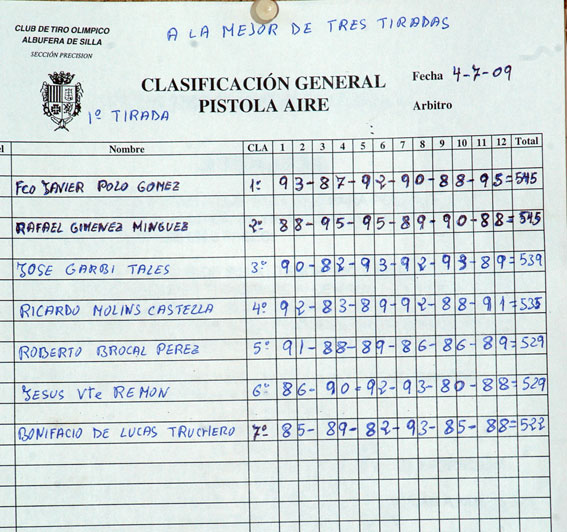 A LA MEJOR DE TRES TIRADAS
CLUB DE TIRO OLIMPICO
ALBUFERA DE SILLA
SECCIÓN PRECISION
CLASIFICACIÓN GENERAL
PISTOLA AIRE
Fecha 4-7-09
Arbitro
1º TIRADA
el Nombre CLA 1 2 3 4 5 6 7 8 9 10 11 12 Total
Fco JAVIER POLO GOMEZ 1º 93-87-92-90-88-95=545
RAFAEL GIMENEZ MINGUEZ 2º 88-95-95-89-90-88=545
JOSE GARBI TALES 3º 90-82-93-92-93-89=539
RICARDO MOLINS CASTELLA 4º 92-83-89-92-88-91=535
ROBERTO BROCAL PEREZ 5º 91-88-89-86-86-89=529
JESUS Vte REMON 6º 86-90-92-93-80-88=529
BONIFACIO DE LUCAS TRUCHERO 7º 85-89-82-93-85-88=522